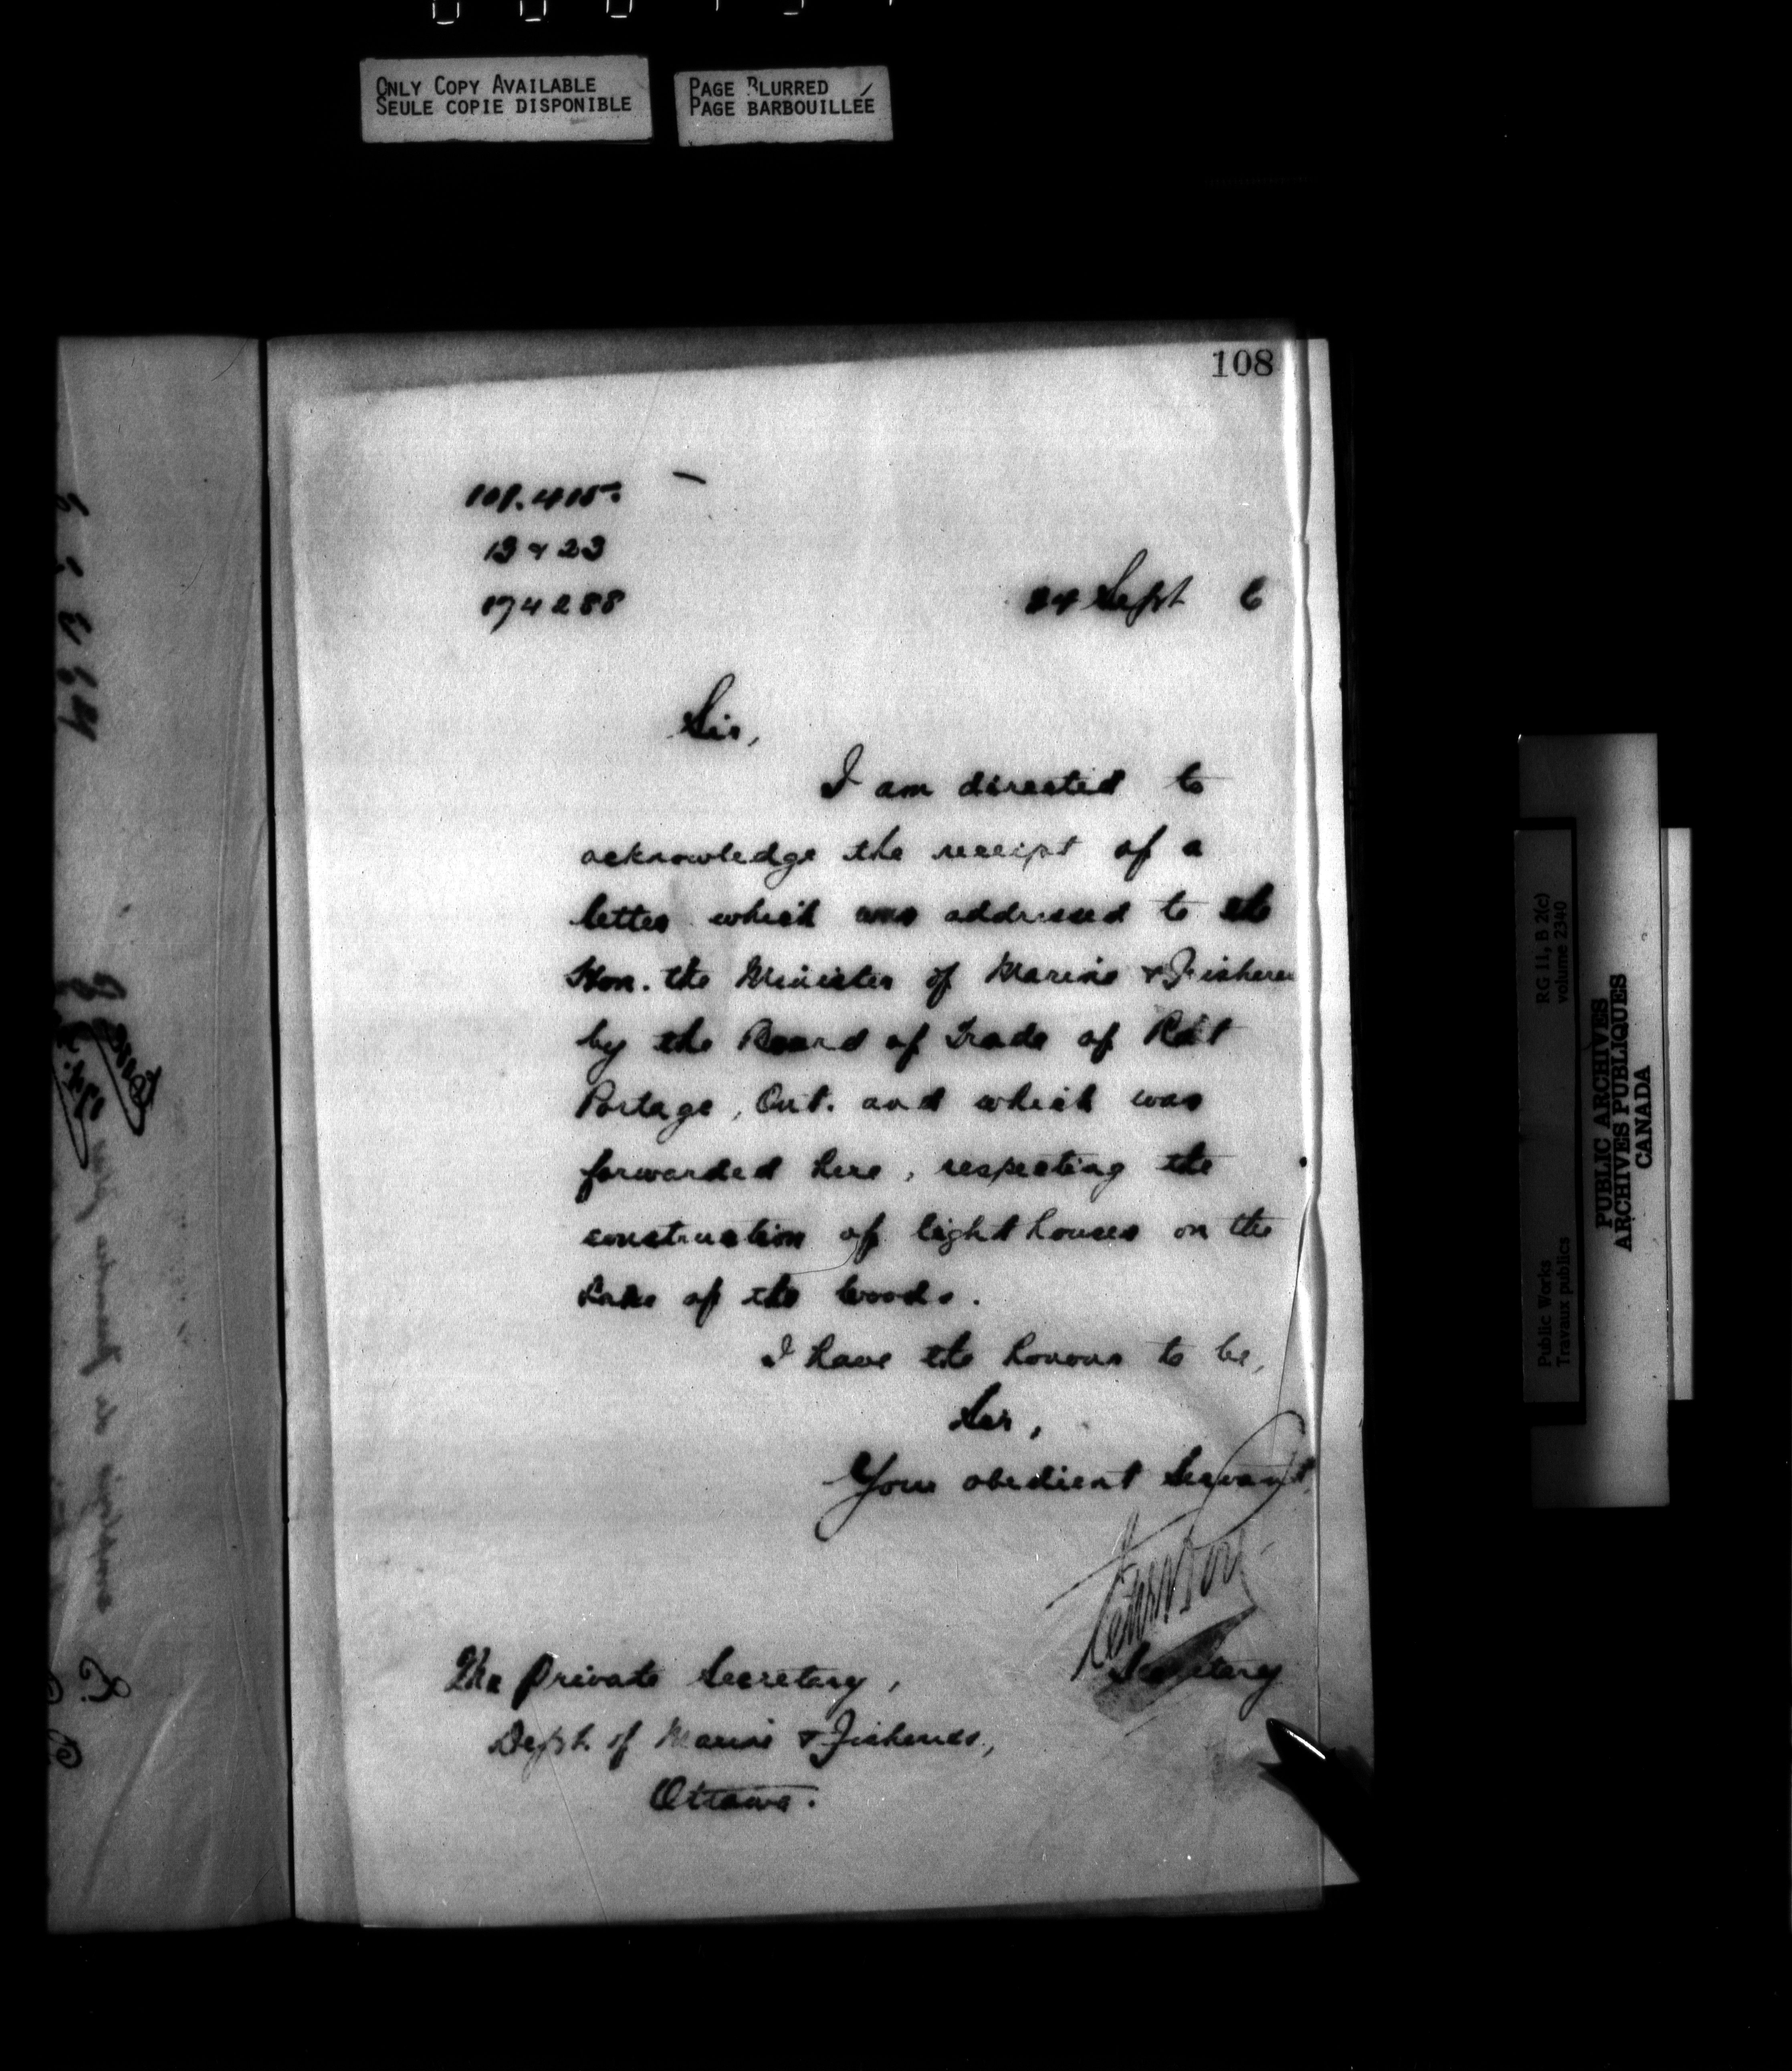 ONLY COPY AVAILABLE
SEULE COPIE DISPONIBLE
PAGE BLURRED
PAGE BARBOUILLÉE
108
13 & 23
174288
24 Sept 6
Sir,
I am directed to
acknowledge the receipt of a
letter which was addressed to the
Hon. the Minister of Marine & Fisheries
by the Board of Trade of Rat
Portage, Ont. and which was
forwarded here, respecting the
construction of light houses on the
Lake of the Woods.
I have the honour to be,
Sir,
Your obedient Servant,
Secretary
The Private Secretary,
Dept. of Marine & Fisheries,
Ottawa.
RG 11, B 2(c)
volume 2340
Public Works
Travaux publics
PUBLIC ARCHIVES
ARCHIVES PUBLIQUES
CANADA